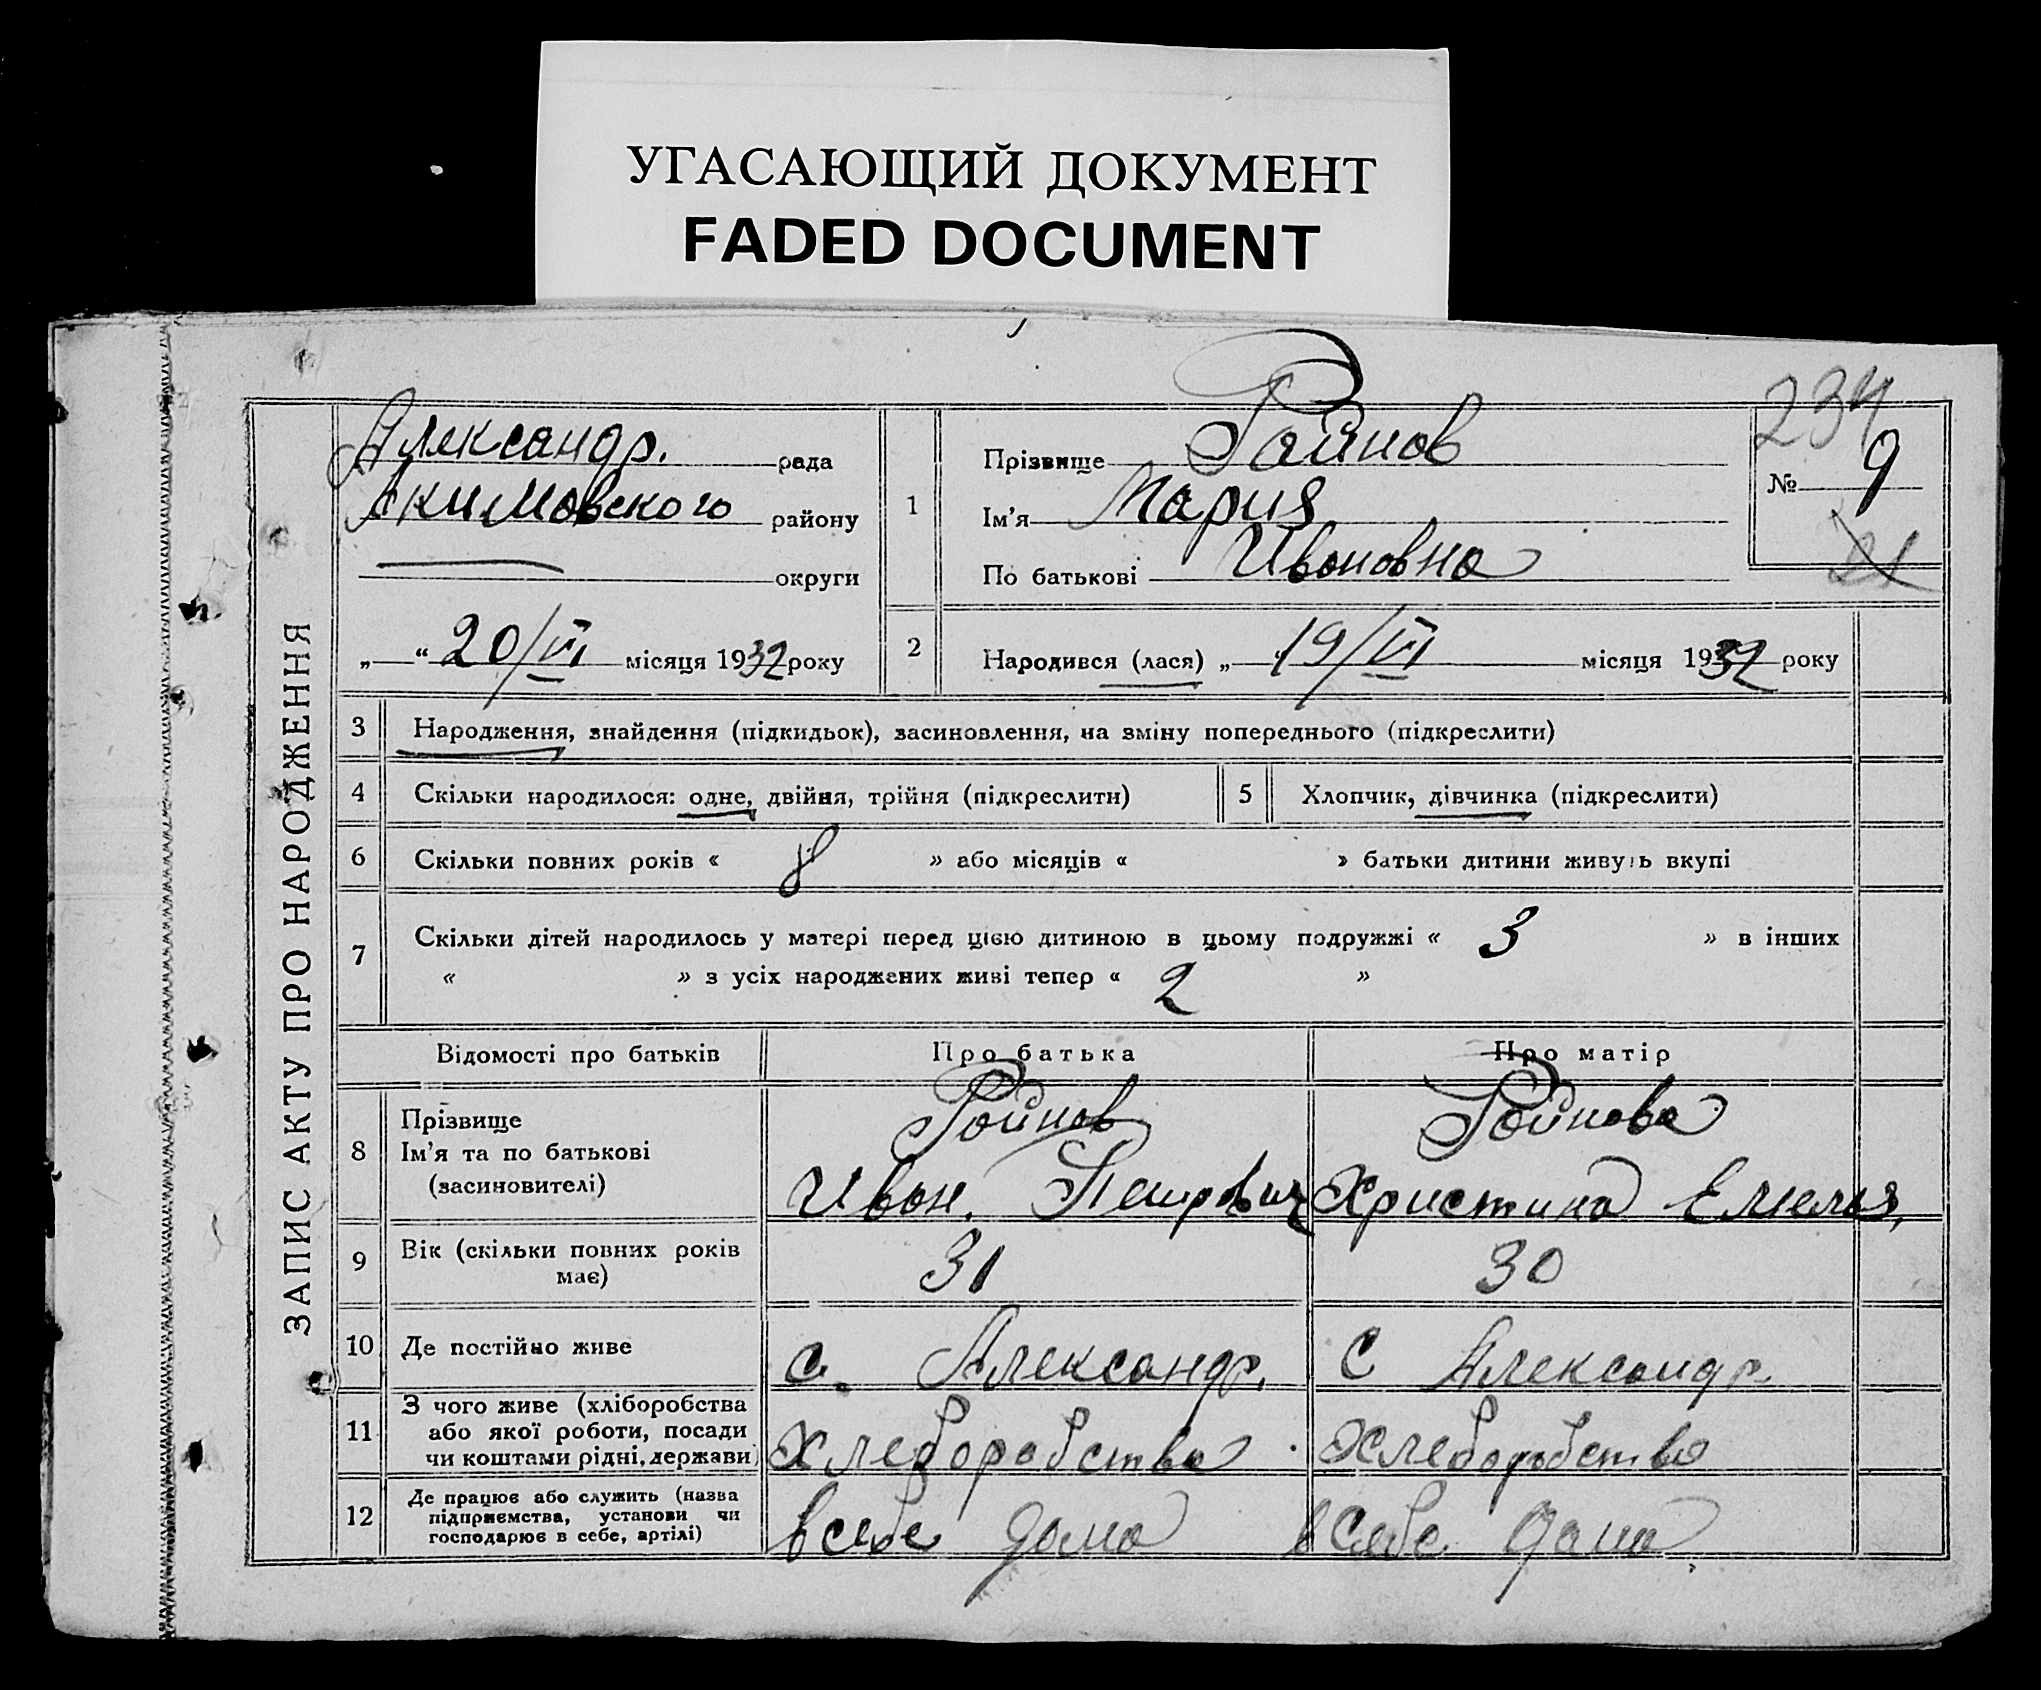 УГАСАЮЩИЙ ДОКУМЕНТ
FADED DOCUMENT
234
ЗАПИС АКТУ ПРО НАРОДЖЕННЯ
Александр. рада
Акимовского району
округи
„ “ 20/VI місяця 1932 року
1
Прізвище Ройнов
Ім'я Мария
По батькові Ивановна
№ 9
21
2 Народився (лася) „ “ 19/VI місяця 1932 року
3 Народження, знайдення (підкидьок), засиновлення, на зміну попереднього (підкреслити)
4 Скільки народилося: одне, двійня, трійня (підкреслити) 5 Хлопчик, дівчинка (підкреслити)
6 Скільки повних років « 8 » або місяців « » батьки дитини живуть вкупі
7 Скільки дітей народилось у матері перед цією дитиною в цьому подружжі « 3 » в інших
« » з усіх народжених живі тепер « 2 »
Відомості про батьків Про батька Про матір
8 Прізвище Ройнов Ройнова
Ім'я та по батькові
(засиновителі) Иван. Петрович Христина Емелья,
9 Вік (скільки повних років
має) 31 30
10 Де постійно живе с. Александр. с Александр.
11 З чого живе (хліборобства
або якої роботи, посади
чи коштами рідні, держави) хлеборобства хлеборобства
12 Де працює або служить (назва
підприємства, установи чи
господарює в себе, артілі) в себе дома в себе дома